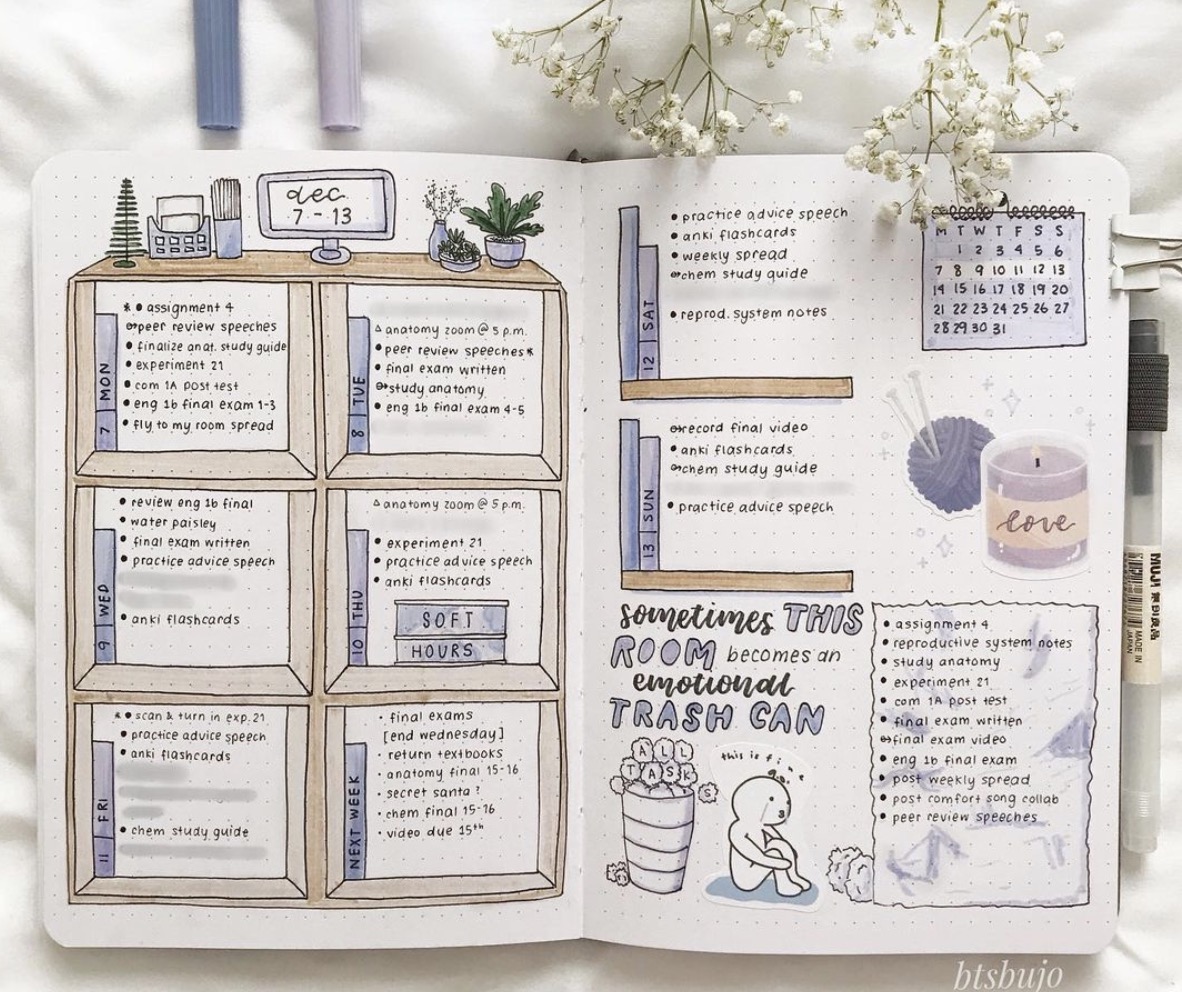 dec.
7 - 13
7 | MON
* • assignment 4
peer review speeches
• finalize anat. study guide
• experiment 21
• com 1A post test
• eng 1b final exam 1-3
• fly to my room spread
8 | TUE
△ anatomy zoom @ 5 p.m.
• peer review speeches *
• final exam written
study anatomy
• eng 1b final exam 4-5
9 | WED
• review eng 1b final
• water paisley
• final exam written
• practice advice speech
• anki flashcards
10 | THU
△ anatomy zoom @ 5 p.m.
• experiment 21
• practice advice speech
• anki flashcards
SOFT
HOURS
11 | FRI
* • scan & turn in exp. 21
• practice advice speech
• anki flashcards
• chem study guide
NEXT WEEK
· final exams
[end wednesday]
· return textbooks
· anatomy final 15-16
· secret santa?
· chem final 15-16
· video due 15th
12 | SAT
• practice advice speech
• anki flashcards
• weekly spread
chem study guide
• reprod. system notes
13 | SUN
record final video
• anki flashcards
chem study guide
• practice advice speech
M T W T F S S
1 2 3 4 5 6
7 8 9 10 11 12 13
14 15 16 17 18 19 20
21 22 23 24 25 26 27
28 29 30 31
love
sometimes THIS
ROOM becomes an
emotional
TRASH CAN
ALL
TASKS
this is fine
• assignment 4
• reproductive system notes
• study anatomy
• experiment 21
• com 1A post test
• final exam written
final exam video
• eng 1b final exam
• post weekly spread
• post comfort song collab
• peer review speeches
MUJI 無印良品
MADE IN
JAPAN
btsbujo